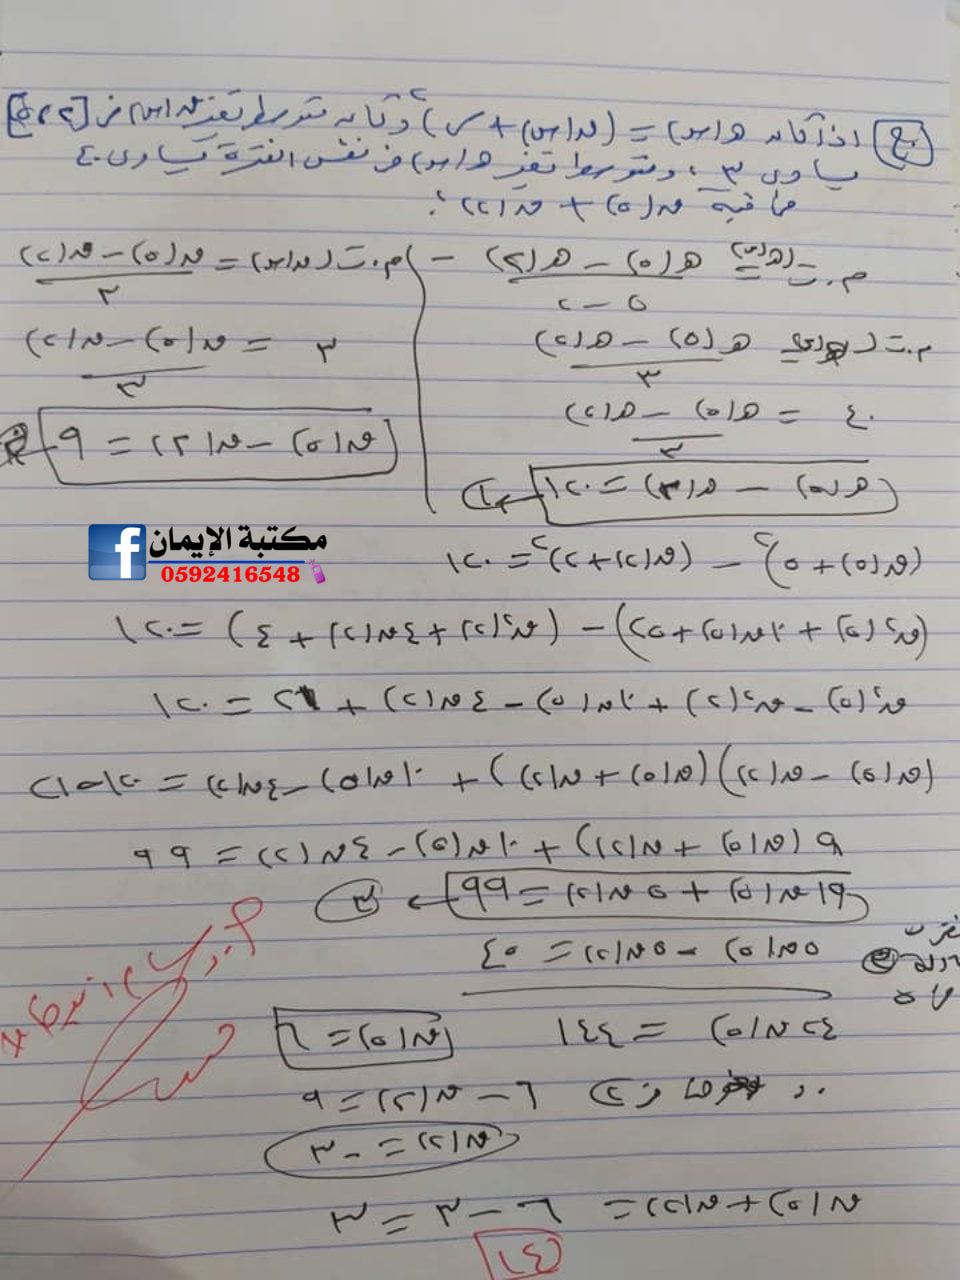 ج) اذا كان هـ(س) = (ق(س) + س)² وكان متوسط تغير ق(س) في [٢ ، ٥]
يساوي ٣ ، ومتوسط تغير هـ(س) في نفس الفترة يساوي ٤٠
ما قيمة ق(٥) + ق(٢) ؟
م.ت (هـ(س)) = هـ(٥) – هـ(٢) / ٥ – ٢
م.ت هـ(س) هـ(٥) – هـ(٢) / ٣
٤٠ = هـ(٥) – هـ(٢) / ٣
هـ(٥) – هـ(٢) = ١٢٠ ← ١
م.ت ق(س) = ق(٥) – ق(٢) / ٣
٣ = ق(٥) – ق(٢) / ٣
ق(٥) – ق(٢) = ٩ ← ٢
مكتبة الإيمان
0592416548
(ق(٥) + ٥)² – (ق(٢) + ٢)² = ١٢٠
(ق²(٥) + ١٠ق(٥) + ٢٥) – (ق²(٢) + ٤ق(٢) + ٤) = ١٢٠
ق²(٥) – ق²(٢) + ١٠ق(٥) – ٤ق(٢) + ٢١ = ١٢٠
(ق(٥) – ق(٢)) (ق(٥) + ق(٢)) + ١٠ق(٥) – ٤ق(٢) =
٩ (ق(٥) + ق(٢)) + ١٠ق(٥) – ٤ق(٢) = ٩٩
١٩ق(٥) + ٥ق(٢) = ٩٩ ← ٣
٥ق(٥) – ٥ق(٢) = ٤٥
نضرب
٢
٢٤ق(٥) = ١٤٤
ق(٥) = ٦
في ٢ ٦ – ق(٢) = ٩
ق(٢) = –٣
ق(٥) + ق(٢) = ٦ – ٣ = ٣
(٤)